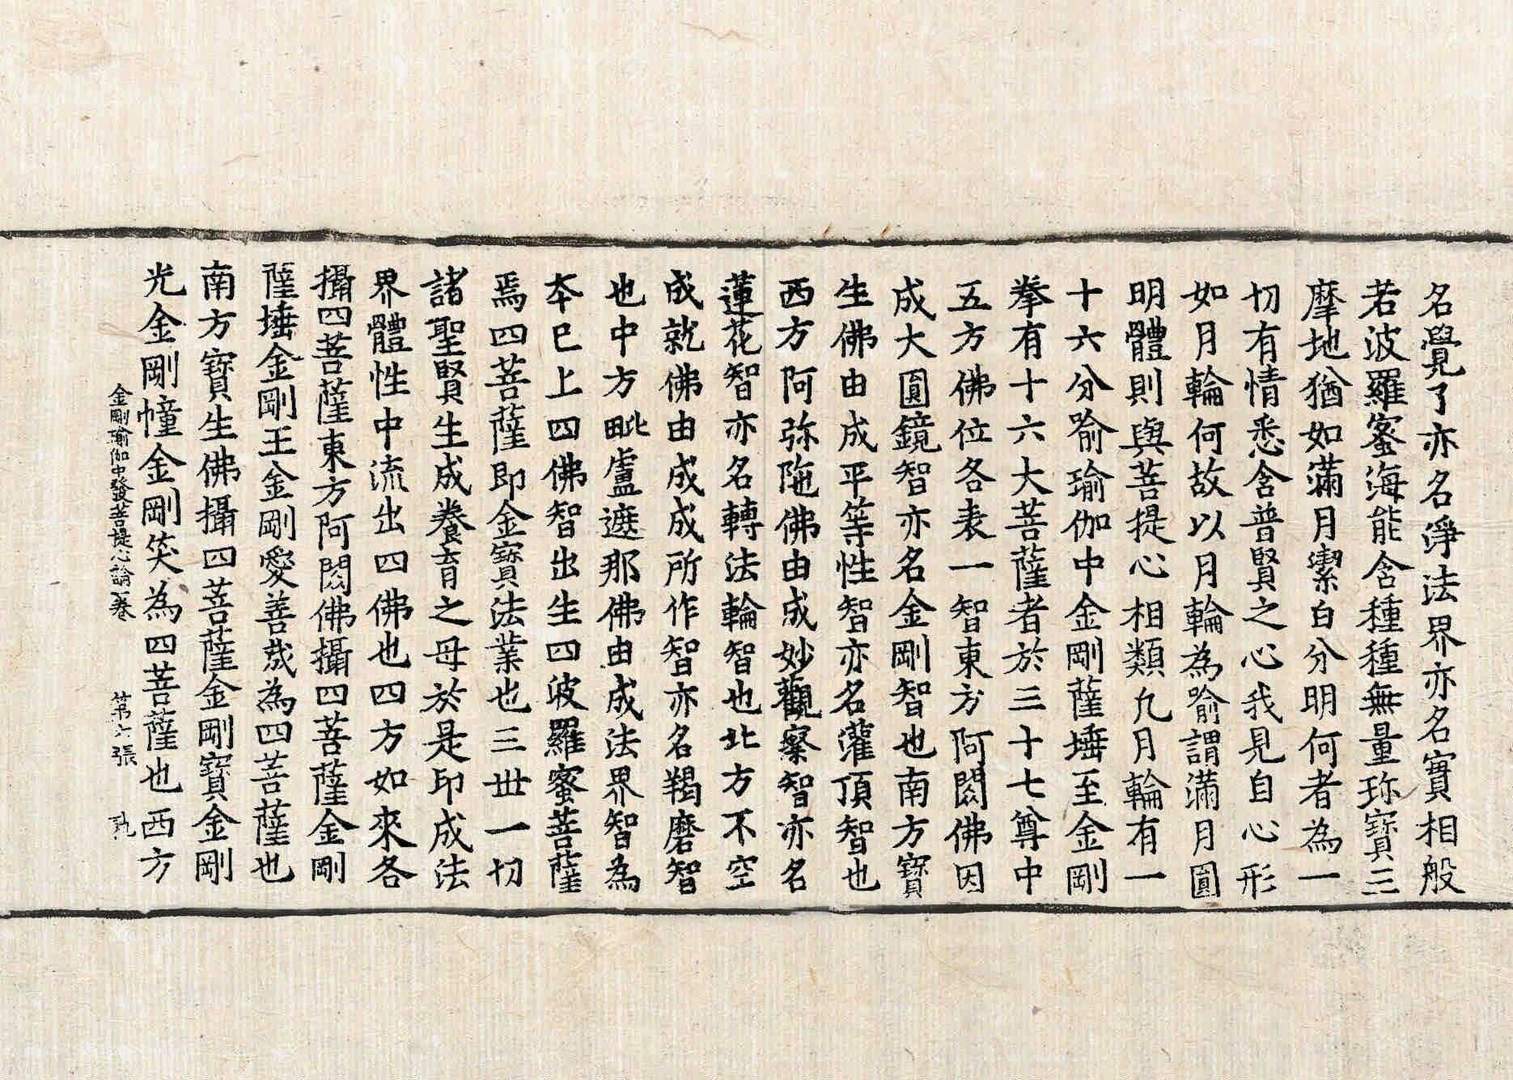 名覺了亦名淨法界亦名實相般
若波羅蜜海能含種種無量珎寶三
摩地猶如滿月㓗白分明何者為一
切有情悉含普賢之心我見自心形
如月輪何故以月輪為喻謂滿月圓
明體則與菩提心相類凢月輪有一
十六分喻瑜伽中金剛薩埵至金剛
拳有十六大菩薩者於三十七尊中
五方佛位各表一智東方阿閦佛因
成大圓鏡智亦名金剛智也南方寶
生佛由成平等性智亦名灌頂智也
西方阿弥陁佛由成妙觀察智亦名
蓮花智亦名轉法輪智也北方不空
成就佛由成成所作智亦名羯磨智
也中方毗盧遮那佛由成法界智為
夲巳上四佛智出生四波羅蜜菩薩
焉四菩薩即金寶法業也三丗一切
諸聖賢生成養育之母於是印成法
界體性中流出四佛也四方如來各
攝四菩薩東方阿閦佛攝四菩薩金剛
薩埵金剛王金剛愛善哉為四菩薩也
南方寶生佛攝四菩薩金剛寶金剛
光金剛幢金剛笑為四菩薩也西方
金剛瑜伽中發菩提心論一卷 第六張